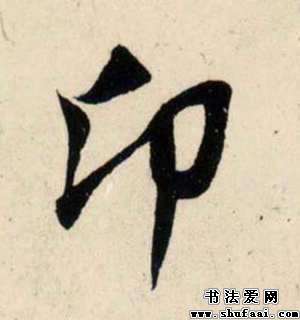 印
书法爱网
www.shufaai.com